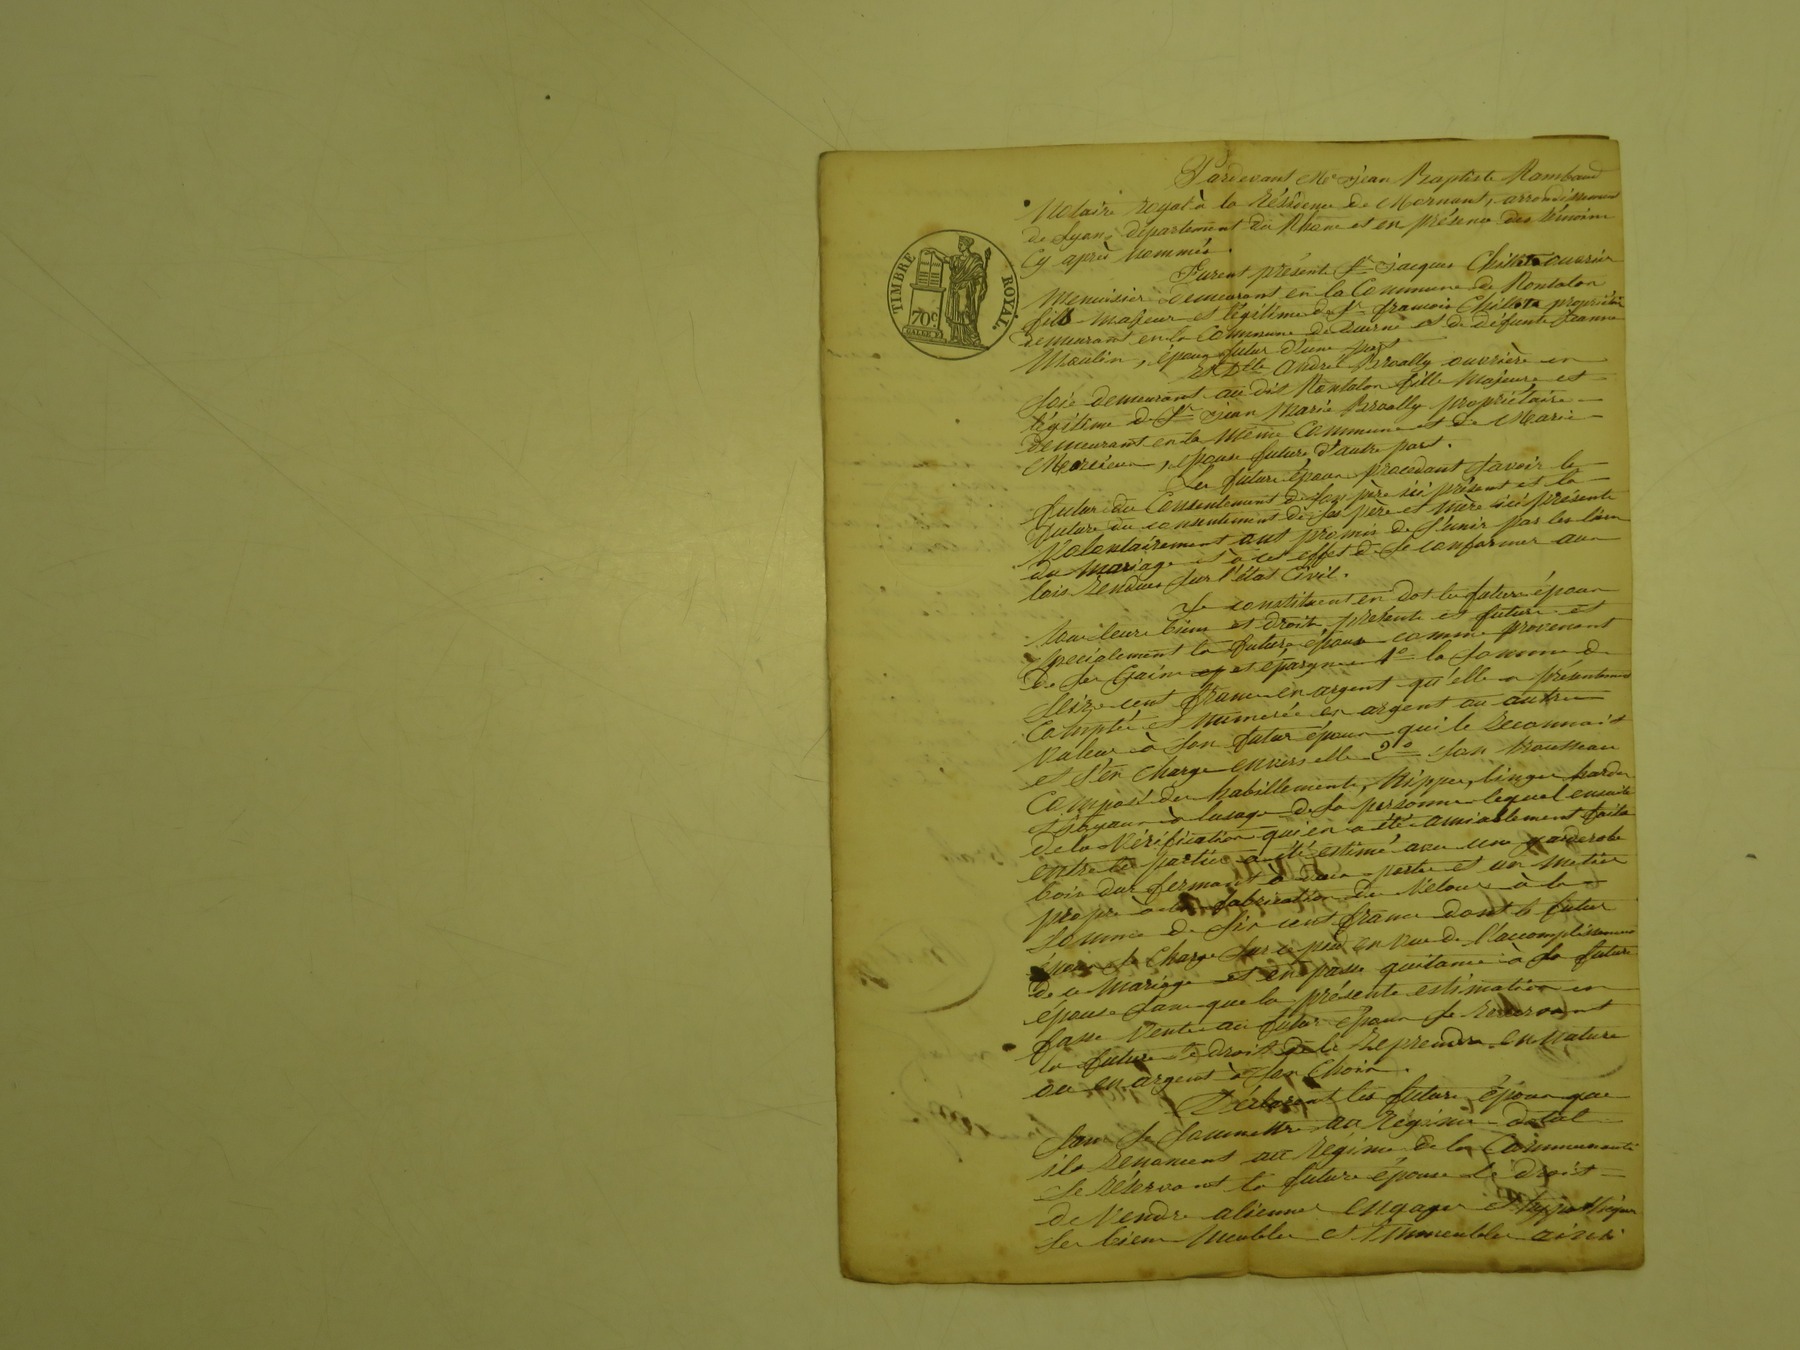 TIMBRE ROYAL
70c
Pardevant Me jean Baptiste Rambaud
Notaire royal à la Résidence de Mornant, arrondissement
de Lyon, département du Rhone et en présence des témoins
Cy après nommés.
Furent présents Sr jacques ouvrier
Menuisier demeurant en la Commune de Rontalon
fils majeur et légitime de Sr françois propriétaire
demeurant en la Commune de et de défunte Jeanne
Moulin, époux futur d'une part
Et Dlle André Broally ouvrière en
soie demeurant au dit Rontalon fille Majeure et
légitime de Sr jean Marie Broally propriétaire
demeurant en la même Commune et de Marie
épouse future d'autre part.
Les futurs époux procédant savoir le
futur du Consentement de son père ici présent et la
future du consentement de ses père et mère ici présents
Volontairement ont promis de s'unir par les liens
du mariage et à cet effet de se conformer aux
lois rendues sur l'état Civil.
Se constituent en dot les futurs époux
tous leurs biens et droits présents et futurs et
specialement la future épouse comme provenant
de ses Gains et épargnes 1o la somme de
seize cent francs en argent qu'elle a présentement
Comptée et numerée en argent ou autres
Valeurs à son futur époux qui le reconnait
et s'en Charge envers elle 2o son trousseau
Composé des habillements, Nippes, linges hardes
& joyaux à lusage de sa personne lequel ensuite
de la Vérification qui en a été amiablement faite
entre les parties a été estimé avec une garderobe
bois dur fermant à deux portes et un metier
propre à la fabrication du Velours à la
somme de six cent francs dont le futur
époux se Charge sur ce pied en vue de l'accomplissement
de ce mariage et en passe quitance à sa future
épouse sans que la présente estimation en
fasse Vente au futur époux se réservant
la future le droit de le reprendre en Nature
ou en argent à son Choix.
Déclarent les futurs époux que
sans se soumettre au Régime dotal
ils renoncent au régime de la Communauté
se réservant la future épouse le droit
de Vendre aliener engager et hypothéquer
ses biens Meubles et Immeubles ainsi